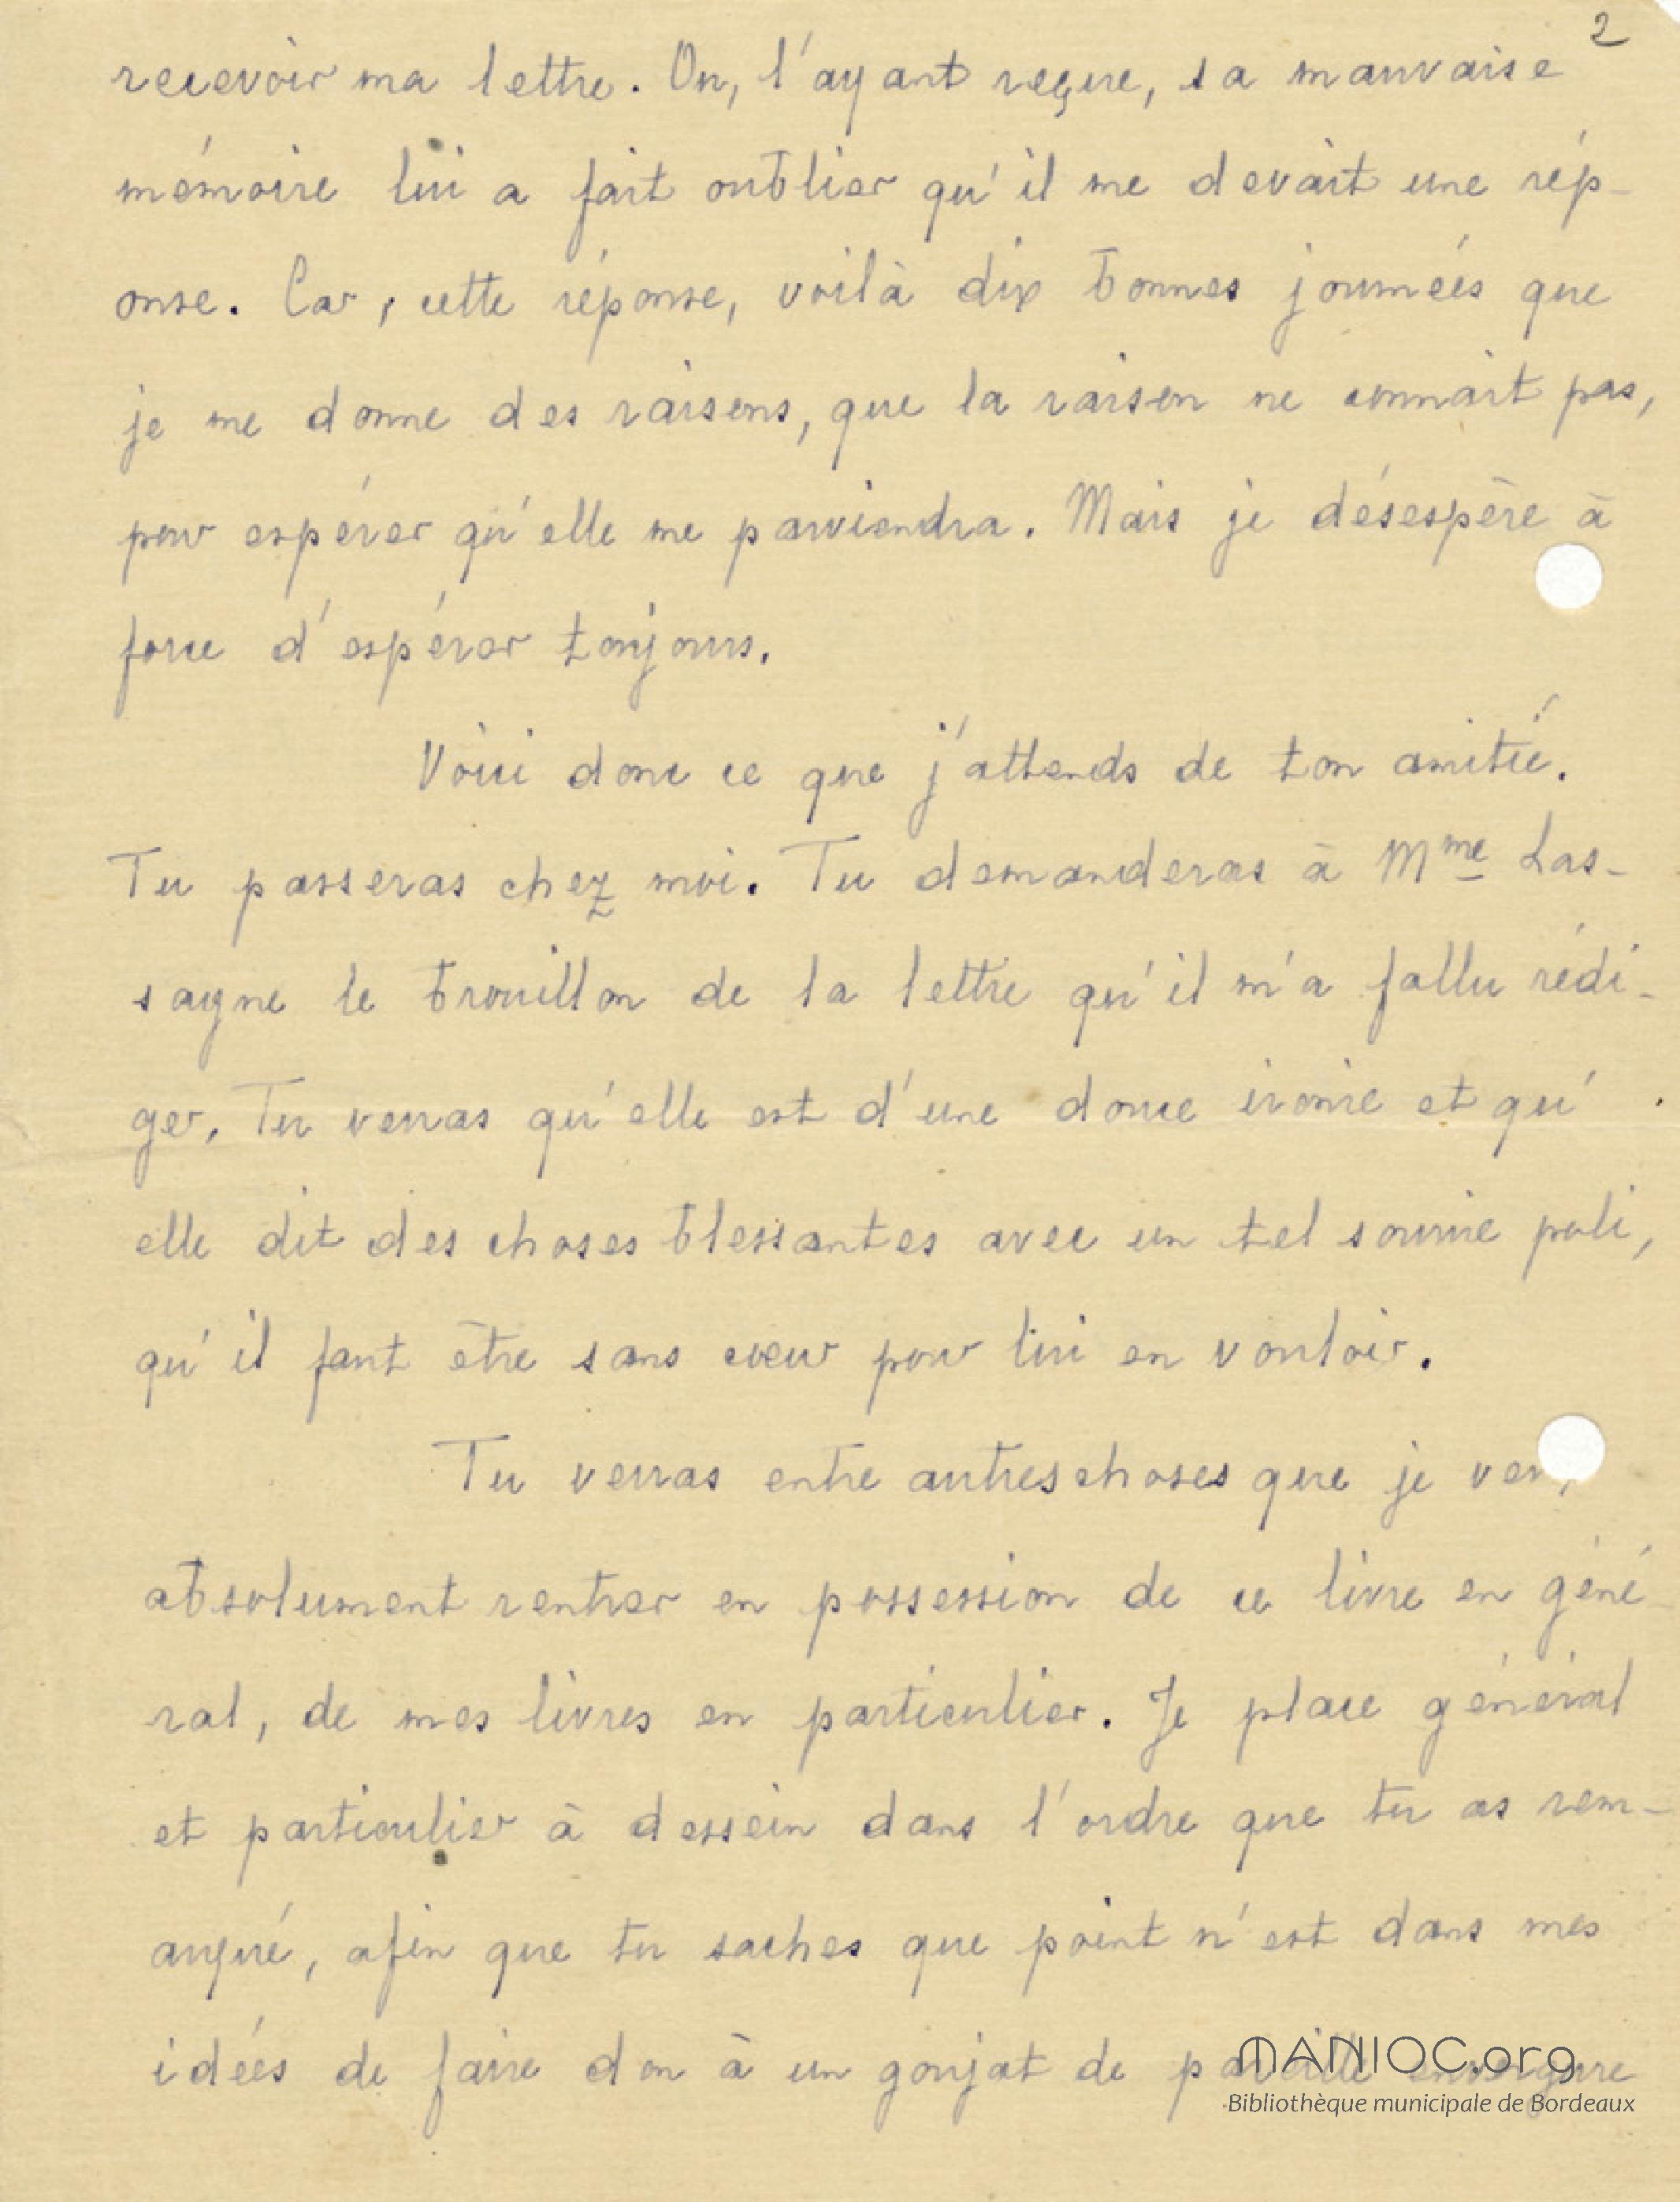 2
recevoir ma lettre. Ou, l'ayant reçue, sa mauvaise
mémoire lui a fait oublier qu'il me devait une rép-
onse. Car, cette réponse, voilà dix bonnes journées que
je me donne des raisons, que la raison ne connaît pas,
pour espérer qu'elle me parviendra. Mais je désespère à
force d'espérer toujours.
Voici donc ce que j'attends de ton amitié.
Tu passeras chez moi. Tu demanderas à Mme Las-
sagne le brouillon de la lettre qu'il m'a fallu rédi-
ger. Tu verras qu'elle est d'une douce ironie et qu'
elle dit des choses blessantes avec un tel sourire poli,
qu'il faut être sans cœur pour lui en vouloir.
Tu verras entre autres choses que je
absolument rentrer en possession de ce livre en géné
ral, de mes livres en particulier. Je place général
et particulier à dessein dans l'ordre que tu as rem-
arqué, afin que tu saches que point n'est dans mes
idées de faire don à un goujat de pareille envergure
MANIOC.org
Bibliothèque municipale de Bordeaux